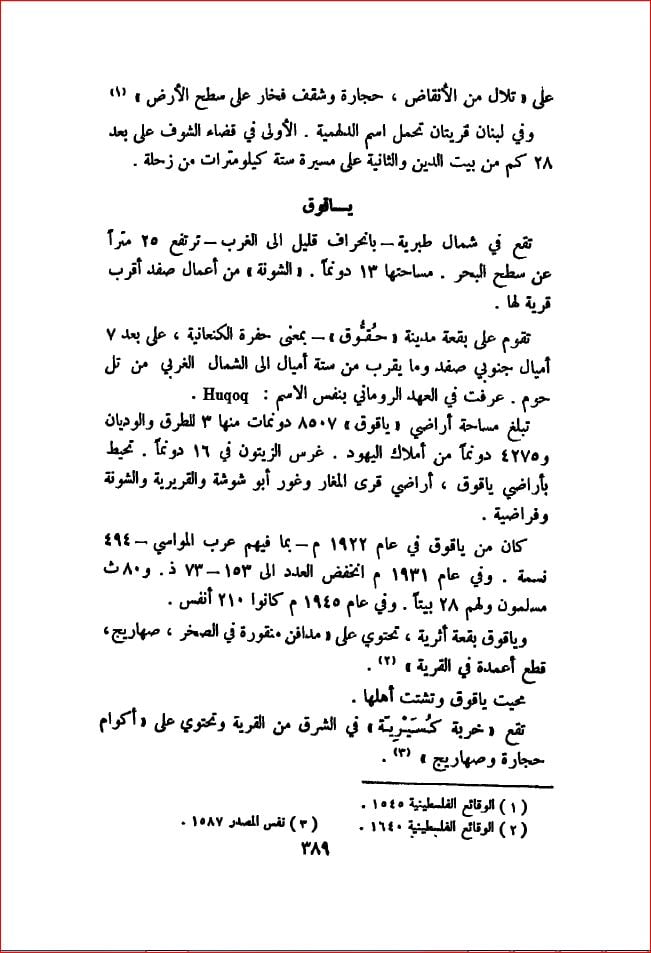 على « تلال من الأنقاض ، حجارة وشقف فخار على سطح الأرض » (١)
وفي لبنان قريتان تحمل اسم الدلهمية . الأولى في قضاء الشوف على بعد
٢٨ كم من بيت الدين والثانية على مسيرة ستة كيلومترات من زحلة .
يـاقوق
تقع في شمال طبرية – بانحراف قليل الى الغرب – ترتفع ٢٥ متراً
عن سطح البحر . مساحتها ١٣ دونماً . « الشونة » من أعمال صفد أقرب
قرية لها .
تقوم على بقعة مدينة « حُقُّوق » – بمعنى حفرة الكنعانية ، على بعد ٧
أميال جنوبي صفد وما يقرب من ستة أميال الى الشمال الغربي من تل
حوم . عرفت في العهد الروماني بنفس الاسم : Huqoq .
تبلغ مساحة أراضي « ياقوق » ٨٥٠٧ دونمات منها ٣ للطرق والوديان
و٤٢٧٥ دونماً من أملاك اليهود . غرس الزيتون في ١٦ دونماً . تحيط
بأراضي ياقوق ، أراضي قرى المغار وغور أبو شوشة والقريرية والشونة
وفراضية .
كان من ياقوق في عام ١٩٢٢ م – بما فيهم عرب المواسي – ٤٩٤
نسمة . وفي عام ١٩٣١ م انخفض العدد الى ١٥٣ – ٧٣ ذ . و٨٠ ث
مسلمون ولهم ٢٨ بيتاً . وفي عام ١٩٤٥ م كانوا ٢١٠ أنفس .
وياقوق بقعة أثرية ، تحتوي على « مدافن منقورة في الصخر ، صهاريج ،
قطع أعمدة في القرية » (٢) .
محيت ياقوق وتشتت أهلها .
تقع « خربة كُسَيْرِيّة » في الشرق من القرية وتحتوي على « أكوام
حجارة وصهاريج » (٣) .
(١) الوقائع الفلسطينية ١٥٤٥ .
(٢) الوقائع الفلسطينية ١٦٤٠ . (٣) نفس المصدر ١٥٨٧ .
٣٨٩